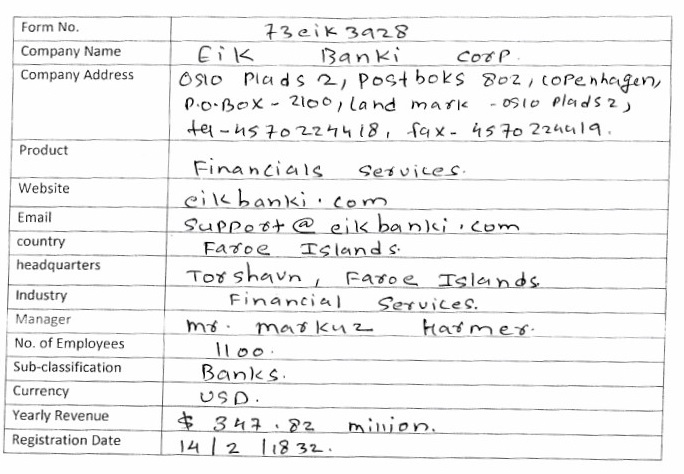 Form No. 73eik3928
Company Name Eik Banki Corp.
Company Address Oslo Plads 2, Postboks 802, Copenhagen,
P.O.Box - 2100, Land mark - Oslo Plads 2,
tel - 4570224418, fax - 4570224419.
Product Financials Services.
Website eikbanki.com
Email Support@eikbanki.com
country Faroe Islands.
headquarters Torshavn, Faroe Islands.
Industry Financial Services.
Manager mr. markuz Harmer.
No. of Employees 1100.
Sub-classification Banks.
Currency USD.
Yearly Revenue $ 347.82 million.
Registration Date 14/2/1832.